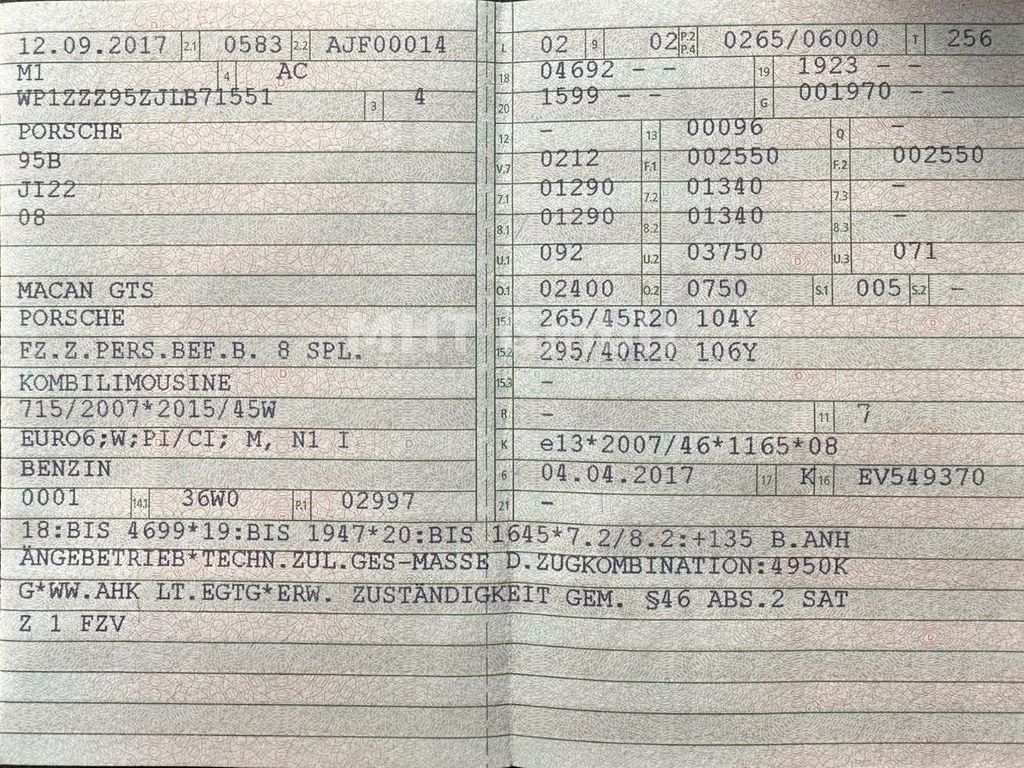 12.09.2017 2.1 0583 2.2 AJF00014
M1 4 AC
WP1ZZZ95ZJLB71551 3 4
PORSCHE
95B
JI22
08
MACAN GTS
PORSCHE
FZ.Z.PERS.BEF.B. 8 SPL.
KOMBILIMOUSINE
715/2007*2015/45W
EURO6;W;PI/CI; M, N1 I
BENZIN
0001 14.1 36W0 P.1 02997
L 02 9 02 P.2 P.4 0265/06000 T 256
18 04692 – – 19 1923 – –
20 1599 – – G 001970 – –
12 – 13 00096 Q –
V.7 0212 F.1 002550 F.2 002550
7.1 01290 7.2 01340 7.3 –
8.1 01290 8.2 01340 8.3 –
U.1 092 U.2 03750 U.3 071
O.1 02400 O.2 0750 S.1 005 S.2 –
15.1 265/45R20 104Y
15.2 295/40R20 106Y
15.3 –
R – 11 7
K e13*2007/46*1165*08
6 04.04.2017 17 K 16 EV549370
21 –
18:BIS 4699*19:BIS 1947*20:BIS 1645*7.2/8.2:+135 B.ANH
ÄNGEBETRIEB*TECHN.ZUL.GES-MASSE D.ZUGKOMBINATION:4950K
G*WW.AHK LT.EGTG*ERW. ZUSTÄNDIGKEIT GEM. §46 ABS.2 SAT
Z 1 FZV